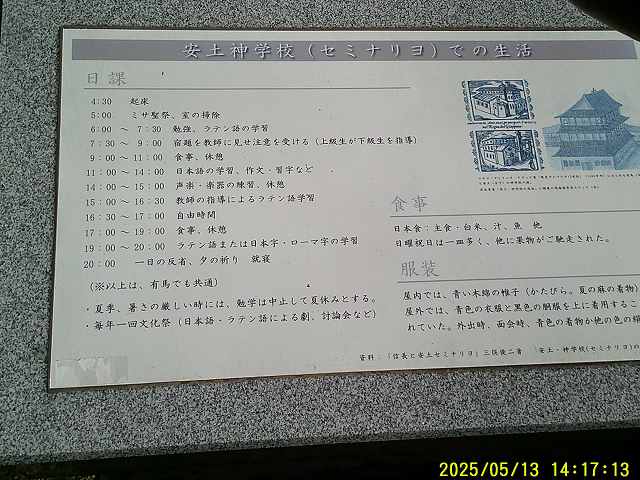 安土神学校(セミナリヨ)での生活
日課
4:30 起床
5:00 ミサ聖祭、室の掃除
6:00 ~ 7:30 勉強、ラテン語の学習
7:30 ~ 9:00 宿題を教師に見せ注意を受ける(上級生が下級生を指導)
9:00 ~ 11:00 食事、休憩
11:00 ~ 14:00 日本語の学習、作文・習字など
14:00 ~ 15:00 声楽・楽器の練習、休憩
15:00 ~ 16:30 教師の指導によるラテン語学習
16:30 ~ 17:00 自由時間
17:00 ~ 19:00 食事、休憩
19:00 ~ 20:00 ラテン語または日本字・ローマ字の学習
20:00 一日の反省、夕の祈り 就寝
(※以上は、有馬でも共通)
・夏季、暑さの厳しい時には、勉学は中止して夏休みとする。
・毎年一回文化祭(日本語・ラテン語による劇、討論会など)
食事
日本食:主食・白米、汁、魚 他
日曜祝日は一皿多く、他に果物がご馳走された。
服装
屋内では、青い木綿の帷子(かたびら。夏の麻の着物)
屋外では、青色の衣服と黒色の胴服を上に着用するこ
れていた。外出時、面会時、青色の着物か他の色の絹
資料:「信長と安土セミナリヨ」三俣俊二著 「安土・神学校(セミナリヨ)の
2025/05/13 14:17:13